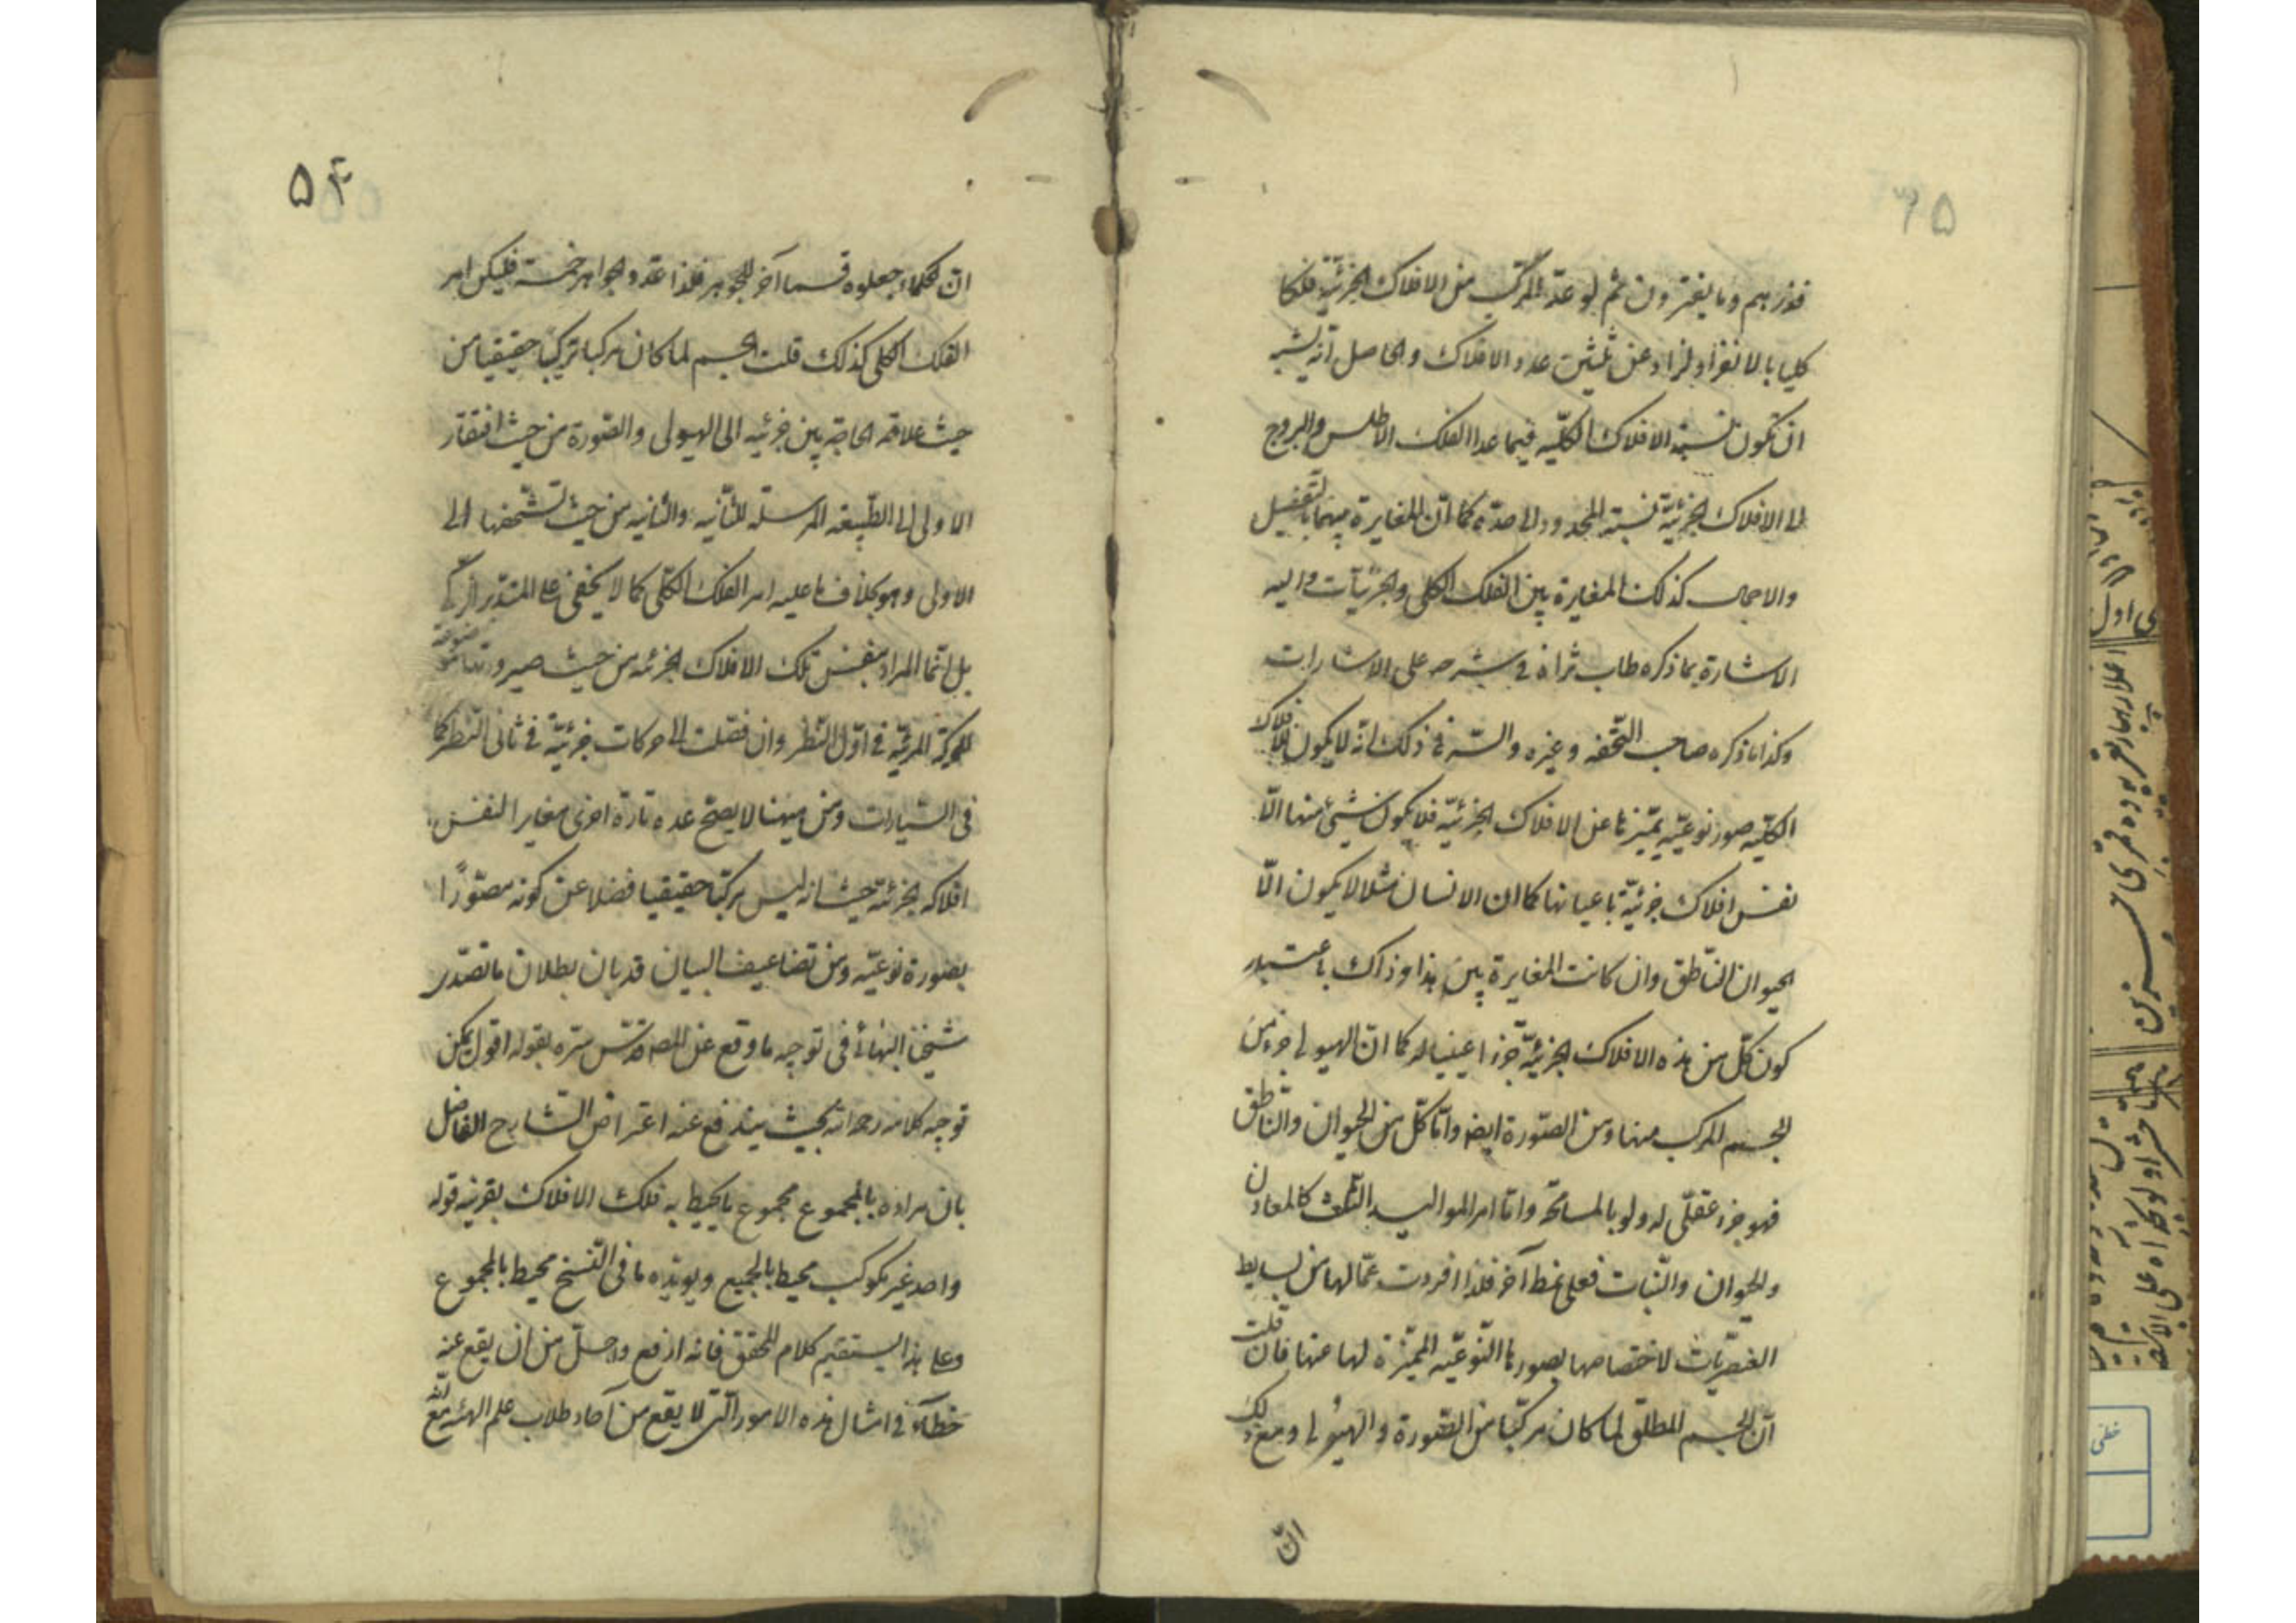 ۵۳
فذرهم وما يفترون ثم لو عد المركب من الافلاك الجزئية فلكا
كليا بالانفراد لزاد عن ثلثين عدد الافلاك والحاصل انه يشبه
ان تكون نسبة الافلاك الكليه فيما عدا الفلك الاطلس والبروج
الى الافلاك الجزئية نسبة المحدود الى حده كما ان المغايرة بينهما بالتفصيل
والاجمال كذلك المغايرة بين الفلك الكلى والجزئيات واليه
الاشارة بما ذكره طاب ثراه فى شرحه على الاشارات
وكذا ما ذكره صاحب التحفه وغيره والسر فى ذلك انه لا يكون للافلاك
الكليه صور نوعيه تميزها عن الافلاك الجزئيه فلا يكون شئ منها الا
نفس افلاك جزئية باعيانها كما ان الانسان مثلا لا يكون الا
الحيوان الناطق وان كانت المغايرة بين هذا وذاك باعتبار
كون كل من هذه الافلاك الجزئية جزءا عينيا له كما ان الهيولى جزء من
الجسم المركب منها ومن الصورة ايضا واما كل من الحيوان والناطق
فهو جزء عقلى له ولو بالمسامحة واما امر المواليد الثلث كالمعادن
والحيوان والنبات فعلى نمط آخر فلذا افردت عما لها من بسايط
العنصريات لاختصاصها بصورها النوعيه المميزة لها عنها فان قلت
ان الجسم المطلق لما كان مركبا من الصورة والهيولى ومع ذلك
ان
۵۴
ان الحكماء جعلوه قسما آخر للجوهر فلذا عدوا الجواهر خمسة فليكن امر
الفلك الكلى كذلك قلت الجسم لما كان مركبا تركيبا حقيقيا من
حيث علاقه الحاجة بين جزئيه الى الهيولى والصورة من حيث افتقار
الاولى الى الطبيعه المرسله للثانيه والثانيه من حيث تشخصها الى
الاولى وهو بخلاف ما عليه امر الفلك الكلى كما لا يخفى على المتدبر الزكى
بل انما المراد بنفس تلك الافلاك الجزئيه من حيث صيرورتها موضوعة
للحركة المرئية فى اول النظر وان فصلت الى حركات جزئية فى ثانى النظر كما
فى السيارات ومن هيهنا لا يصح عده تارة اخرى مغايرا لنفس
افلاكه الجزئية حيث انه ليس مركبا حقيقيا فضلا عن كونه مصورًا
بصورة نوعيه ومن تضاعيف البيان قد بان بطلان ما تصدر
شيخنا البهائى فى توجيه ما وقع عن المص قدس سره بقوله اقول يمكن
توجيه كلامه رحمه الله بحيث يندفع عنه اعتراض الشارح الفاضل
بان مراده بالمجموع مجموع ما يحيط به فلك الافلاك بقرينه قوله
واحد غير مكوكب محيط بالجميع ويويده ما فى النسخ محيط بالمجموع
وعلى هذا يستقيم كلام المحقق فانه ارفع واجل من ان يقع عنه
خطاء فى امثال هذه الامور التى لا يقع من آحاد طلاب علم الهيئه